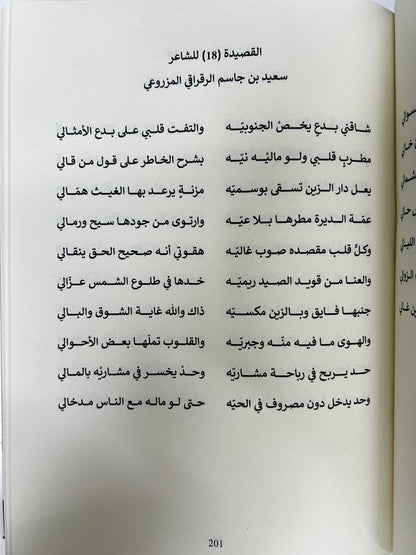 القصيدة (18) للشاعر
سعيد بن جاسم الرقراقي المزروعي
شاقني بدعٍ يخصْ الجنوبيّه والتفت قلبي على بدع الأمثالي
مطربٍ قلبي ولو ماليْه نيّه بشرح الخاطر على قول من قالي
يعل دار الزين تسقى بوسميّه مزنةٍ يرعد بها الغيث همّالي
عمّة الديرة مطرها بلا عيّه وارتوى من جودها سيح ورمالي
وكلٍّ قلب مقصده صوب غاليّه هقوتي أنه صحيح الحق ينقالي
والعنا من قويد الصيد ريميّه خدها في طلوع الشمس عزّالي
جنبها فايق وبالزين مكسيّه ذاك والله غاية الشوق والبالي
والهوى ما فيه منّه وجبريّه والقلوب تملّها بعض الأحوالي
حد يربح في رباحة مشاريّه وحدْ يخسر في مشاريْه بالمالي
وحد يدخل دون مصروف في الحيّه حتى لو ماله مع الناس مدخالي
201
خالي
الليالي